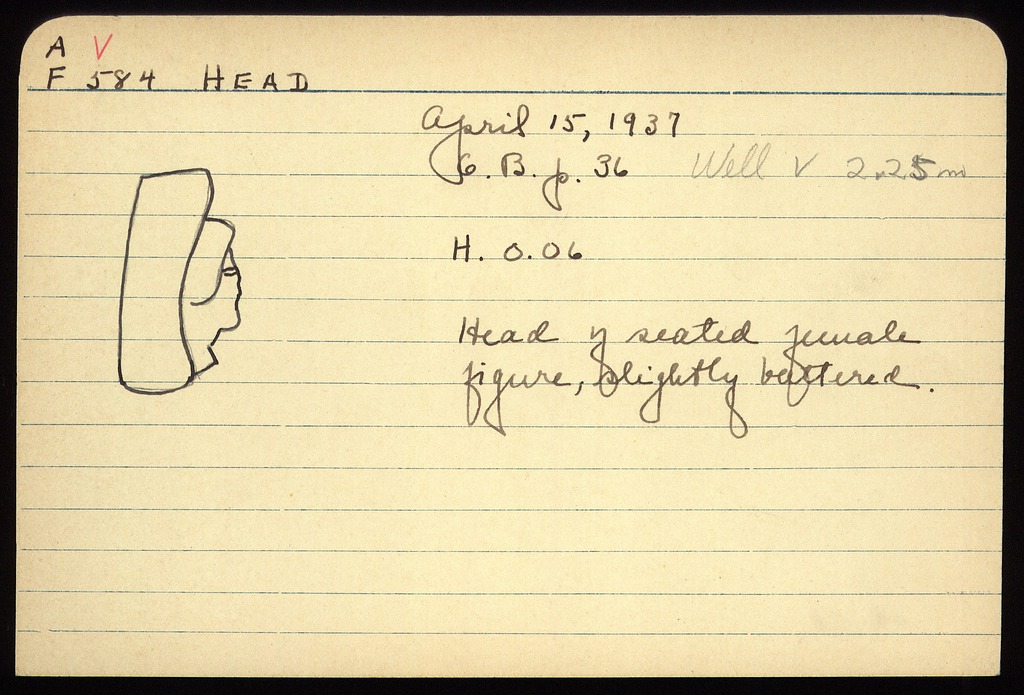 A V
F 584 HEAD
April 15, 1937
G. B. p. 36 Well V 2.25m
H. 0.06
Head of seated female
figure, slightly battered.